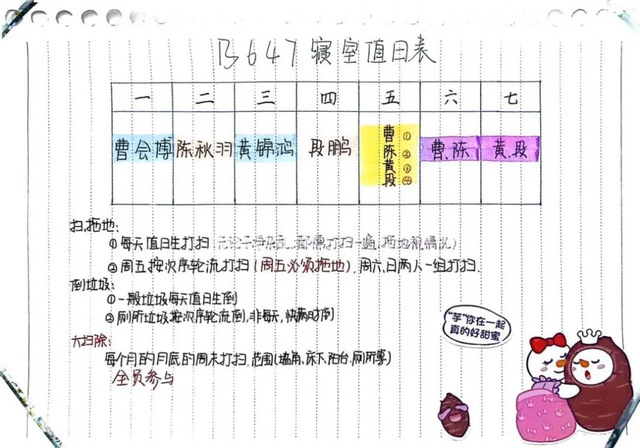 B647寝室值日表
一 二 三 四 五 六 七
曹会博 陈秋羽 黄锦鸿 段鹏 曹① 曹、陈 黄、段
陈②
黄③
段④
扫、拖地:
①每天值日生打扫(无论干净与否,都需打扫一遍,拖地视情况)
②周五按次序轮流打扫(周五必须拖地),周六、日两人一组打扫.
倒垃圾:
①一般垃圾每天值日生倒
②厕所垃圾按次序轮流倒,非每天,快满时倒
大扫除:
每个月的月底的周末打扫,范围(墙角,床下,阳台,厕所等)
全员参与
“芋”你在一起
真的好甜蜜